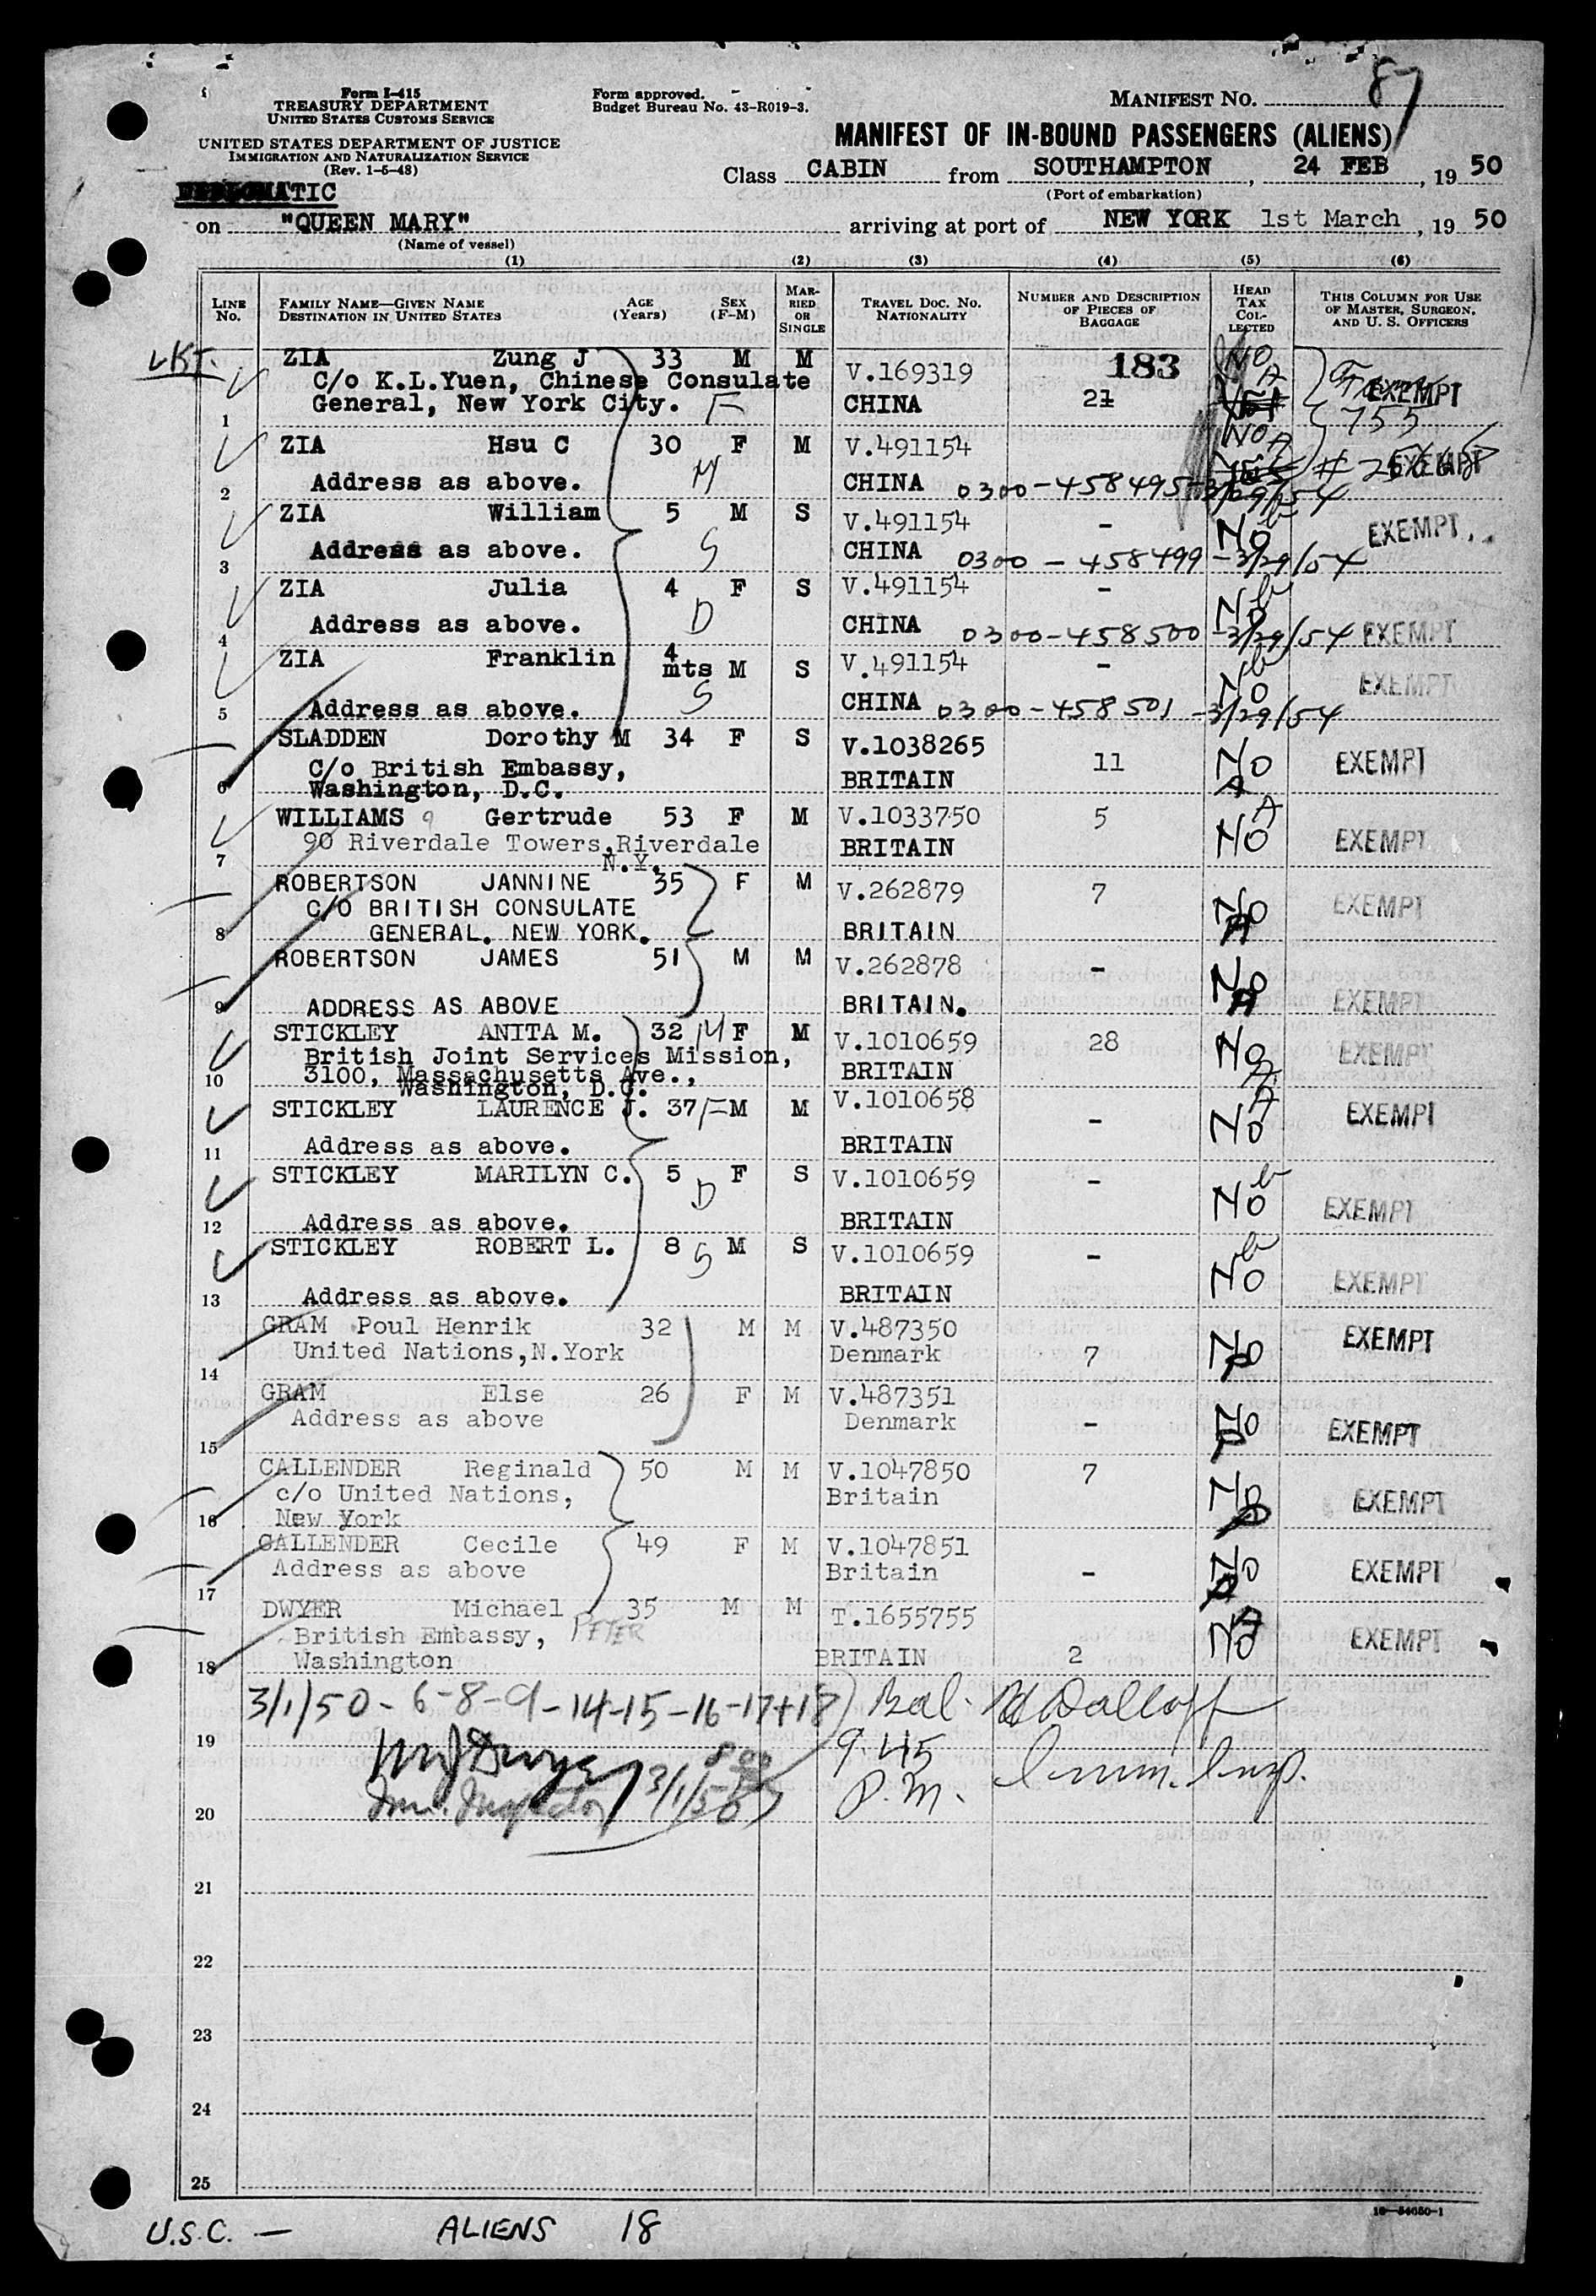 Form I-415
TREASURY DEPARTMENT
UNITED STATES CUSTOMS SERVICE
UNITED STATES DEPARTMENT OF JUSTICE
IMMIGRATION AND NATURALIZATION SERVICE
(Rev. 1-5-48)
Form approved.
Budget Bureau No. 43-R019-3.
MANIFEST NO. 87
MANIFEST OF IN-BOUND PASSENGERS (ALIENS)
DIPLOMATIC
Class CABIN from SOUTHAMPTON, 24 FEB, 19 50
(Port of embarkation)
on "QUEEN MARY" arriving at port of NEW YORK 1st March, 19 50
(Name of vessel)
(1) (2) (3) (4) (5) (6)
LINE No. FAMILY NAME—GIVEN NAME DESTINATION IN UNITED STATES AGE (Years) SEX (F-M) MARRIED OR SINGLE TRAVEL DOC. NO. NATIONALITY NUMBER AND DESCRIPTION OF PIECES OF BAGGAGE HEAD TAX COLLECTED THIS COLUMN FOR USE OF MASTER, SURGEON, AND U. S. OFFICERS
ZIA Zung J 33 M M V.169319 183 NO A
C/o K.L.Yuen, Chinese Consulate EXEMPT
1 General, New York City. F CHINA 21 755
ZIA Hsu C 30 F M V.491154 NO A EXEMPT
2 Address as above. M CHINA 0300-458495-3/29/54
ZIA William 5 M S V.491154 - No b EXEMPT
3 Address as above. S CHINA 0300-458499-3/29/54
ZIA Julia 4 F S V.491154 - No b
4 Address as above. D CHINA 0300-458500-3/29/54 EXEMPT
ZIA Franklin 4 mts M S V.491154 - No b EXEMPT
5 Address as above. S CHINA 0300-458501-3/29/54
SLADDEN Dorothy M 34 F S V.1038265 11 No A EXEMPT
C/o British Embassy, BRITAIN
6 Washington, D.C.
WILLIAMS Gertrude 53 F M V.1033750 5 No A EXEMPT
90 Riverdale Towers,Riverdale BRITAIN
7 N.Y.
ROBERTSON JANNINE 35 F M V.262879 7 No A EXEMPT
C/O BRITISH CONSULATE
8 GENERAL. NEW YORK. BRITAIN
ROBERTSON JAMES 51 M M V.262878 - No A EXEMPT
9 ADDRESS AS ABOVE BRITAIN.
STICKLEY ANITA M. 32 M F M V.1010659 28 No A EXEMPT
British Joint Services Mission,
10 3100, Massachusetts Ave., BRITAIN
Washington, D.C.
STICKLEY LAURENCE J. 37 F M M V.1010658 - No A EXEMPT
11 Address as above. BRITAIN
STICKLEY MARILYN C. 5 D F S V.1010659 - No b EXEMPT
12 Address as above. BRITAIN
STICKLEY ROBERT L. 8 S M S V.1010659 - No b EXEMPT
13 Address as above. BRITAIN
GRAM Poul Henrik 32 M M V.487350 No EXEMPT
14 United Nations,N.York Denmark 7
GRAM Else 26 F M V.487351 No EXEMPT
15 Address as above Denmark -
CALLENDER Reginald 50 M M V.1047850 7 No EXEMPT
c/o United Nations, Britain
16 New York
CALLENDER Cecile 49 F M V.1047851 No EXEMPT
17 Address as above Britain -
DWYER Michael 35 M M T.1655755 No A EXEMPT
British Embassy, PETER
18 Washington BRITAIN 2
3/1/50 - 6-8-9-14-15-16-17+18) Bal.
19 9.45
20 3/1/50 P.M. Imm. Insp.
21
22
23
24
25
16—54650-1
U.S.C. — ALIENS 18